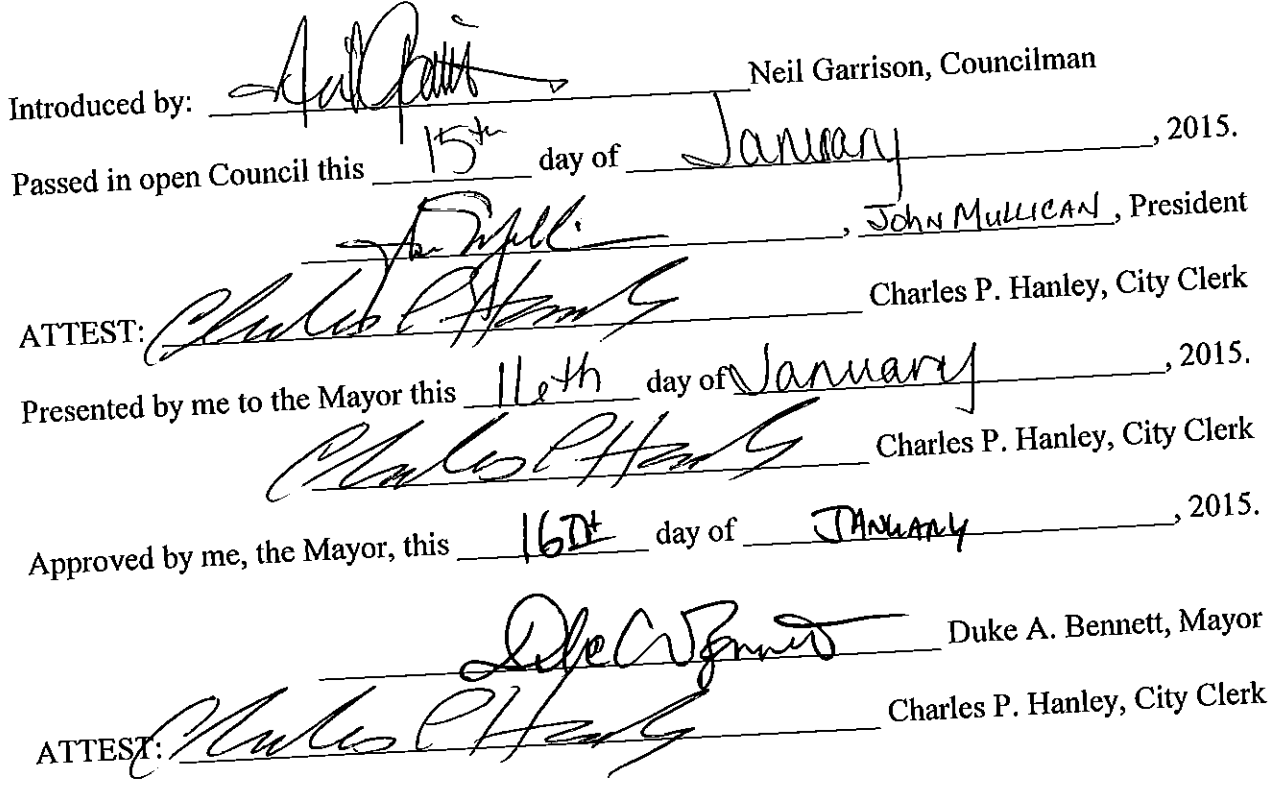 Introduced by: Neil Garrison, Councilman
Passed in open Council this 15th day of January, 2015.
, John Mullican, President
ATTEST: Charles P. Hanley Charles P. Hanley, City Clerk
Presented by me to the Mayor this 16th day of January, 2015.
Charles P. Hanley Charles P. Hanley, City Clerk
Approved by me, the Mayor, this 16TH day of JANUARY, 2015.
Duke A. Bennett Duke A. Bennett, Mayor
ATTEST: Charles P. Hanley Charles P. Hanley, City Clerk